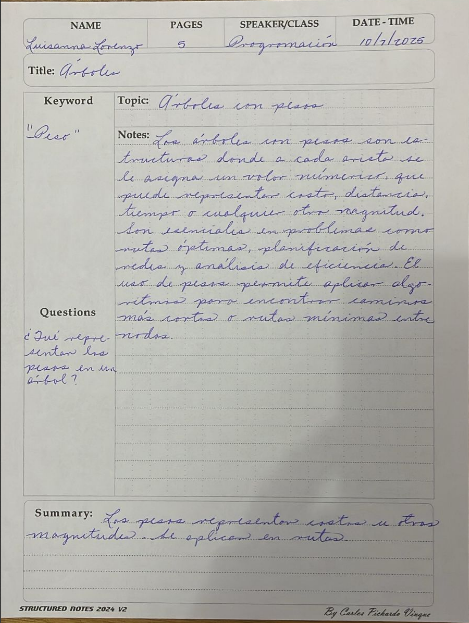 NAME PAGES SPEAKER/CLASS DATE - TIME
Luisanna Lorenzo 5 Programación 10/7/2025
Title: Árboles
Keyword
"Peso"
Topic: Árboles con pesos
Notes: Los árboles con pesos son es-
tructuras donde a cada arista se
le asigna un valor númerico, que
puede representar costo, distancia,
tiempo o cualquier otra magnitud.
Son esenciales en problemas como
rutas óptimas, planificación de
redes y análisis de eficiencia. El
uso de pesos permite aplicar algo-
ritmos para encontrar caminos
más cortos o rutas mínimas entre
nodos.
Questions
¿Qué repre-
sentan los
pesos en un
árbol?
Summary: Los pesos representan costos u otras
magnitudes. Se aplican en rutas.
STRUCTURED NOTES 2024 V2 By Carlos Pichardo Vinque